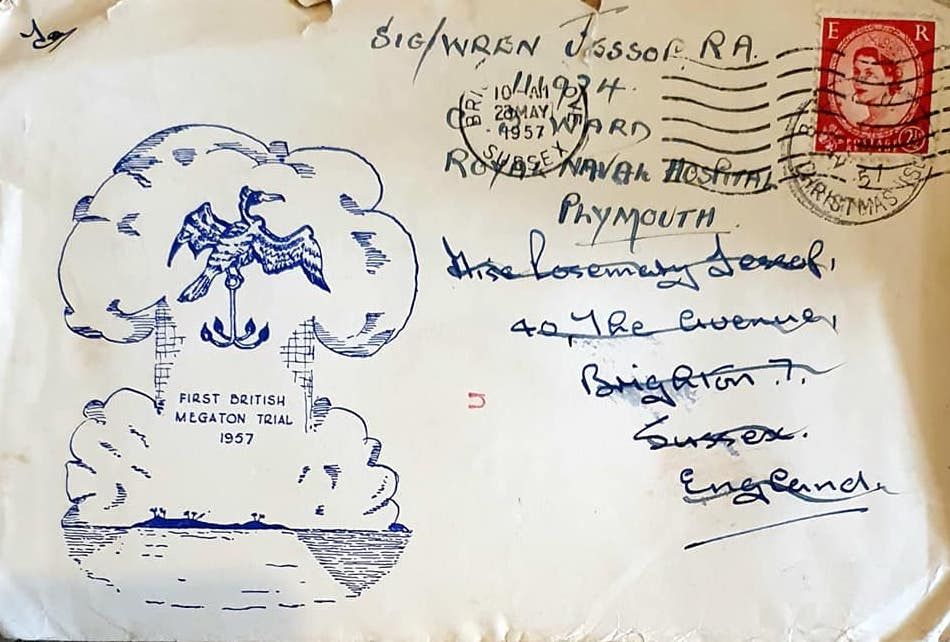 SIG/WREN JESSOP. R.A.
WARD
ROYAL NAVAL HOSPITAL
PLYMOUTH.
Miss Rosemary Jessop,
40, The Avenue,
Brighton 7.
Sussex.
England.
E R
2½
10 AM
23 MAY
1957
SUSSEX
57
CHRISTMAS IS
FIRST BRITISH
MEGATON TRIAL
1957